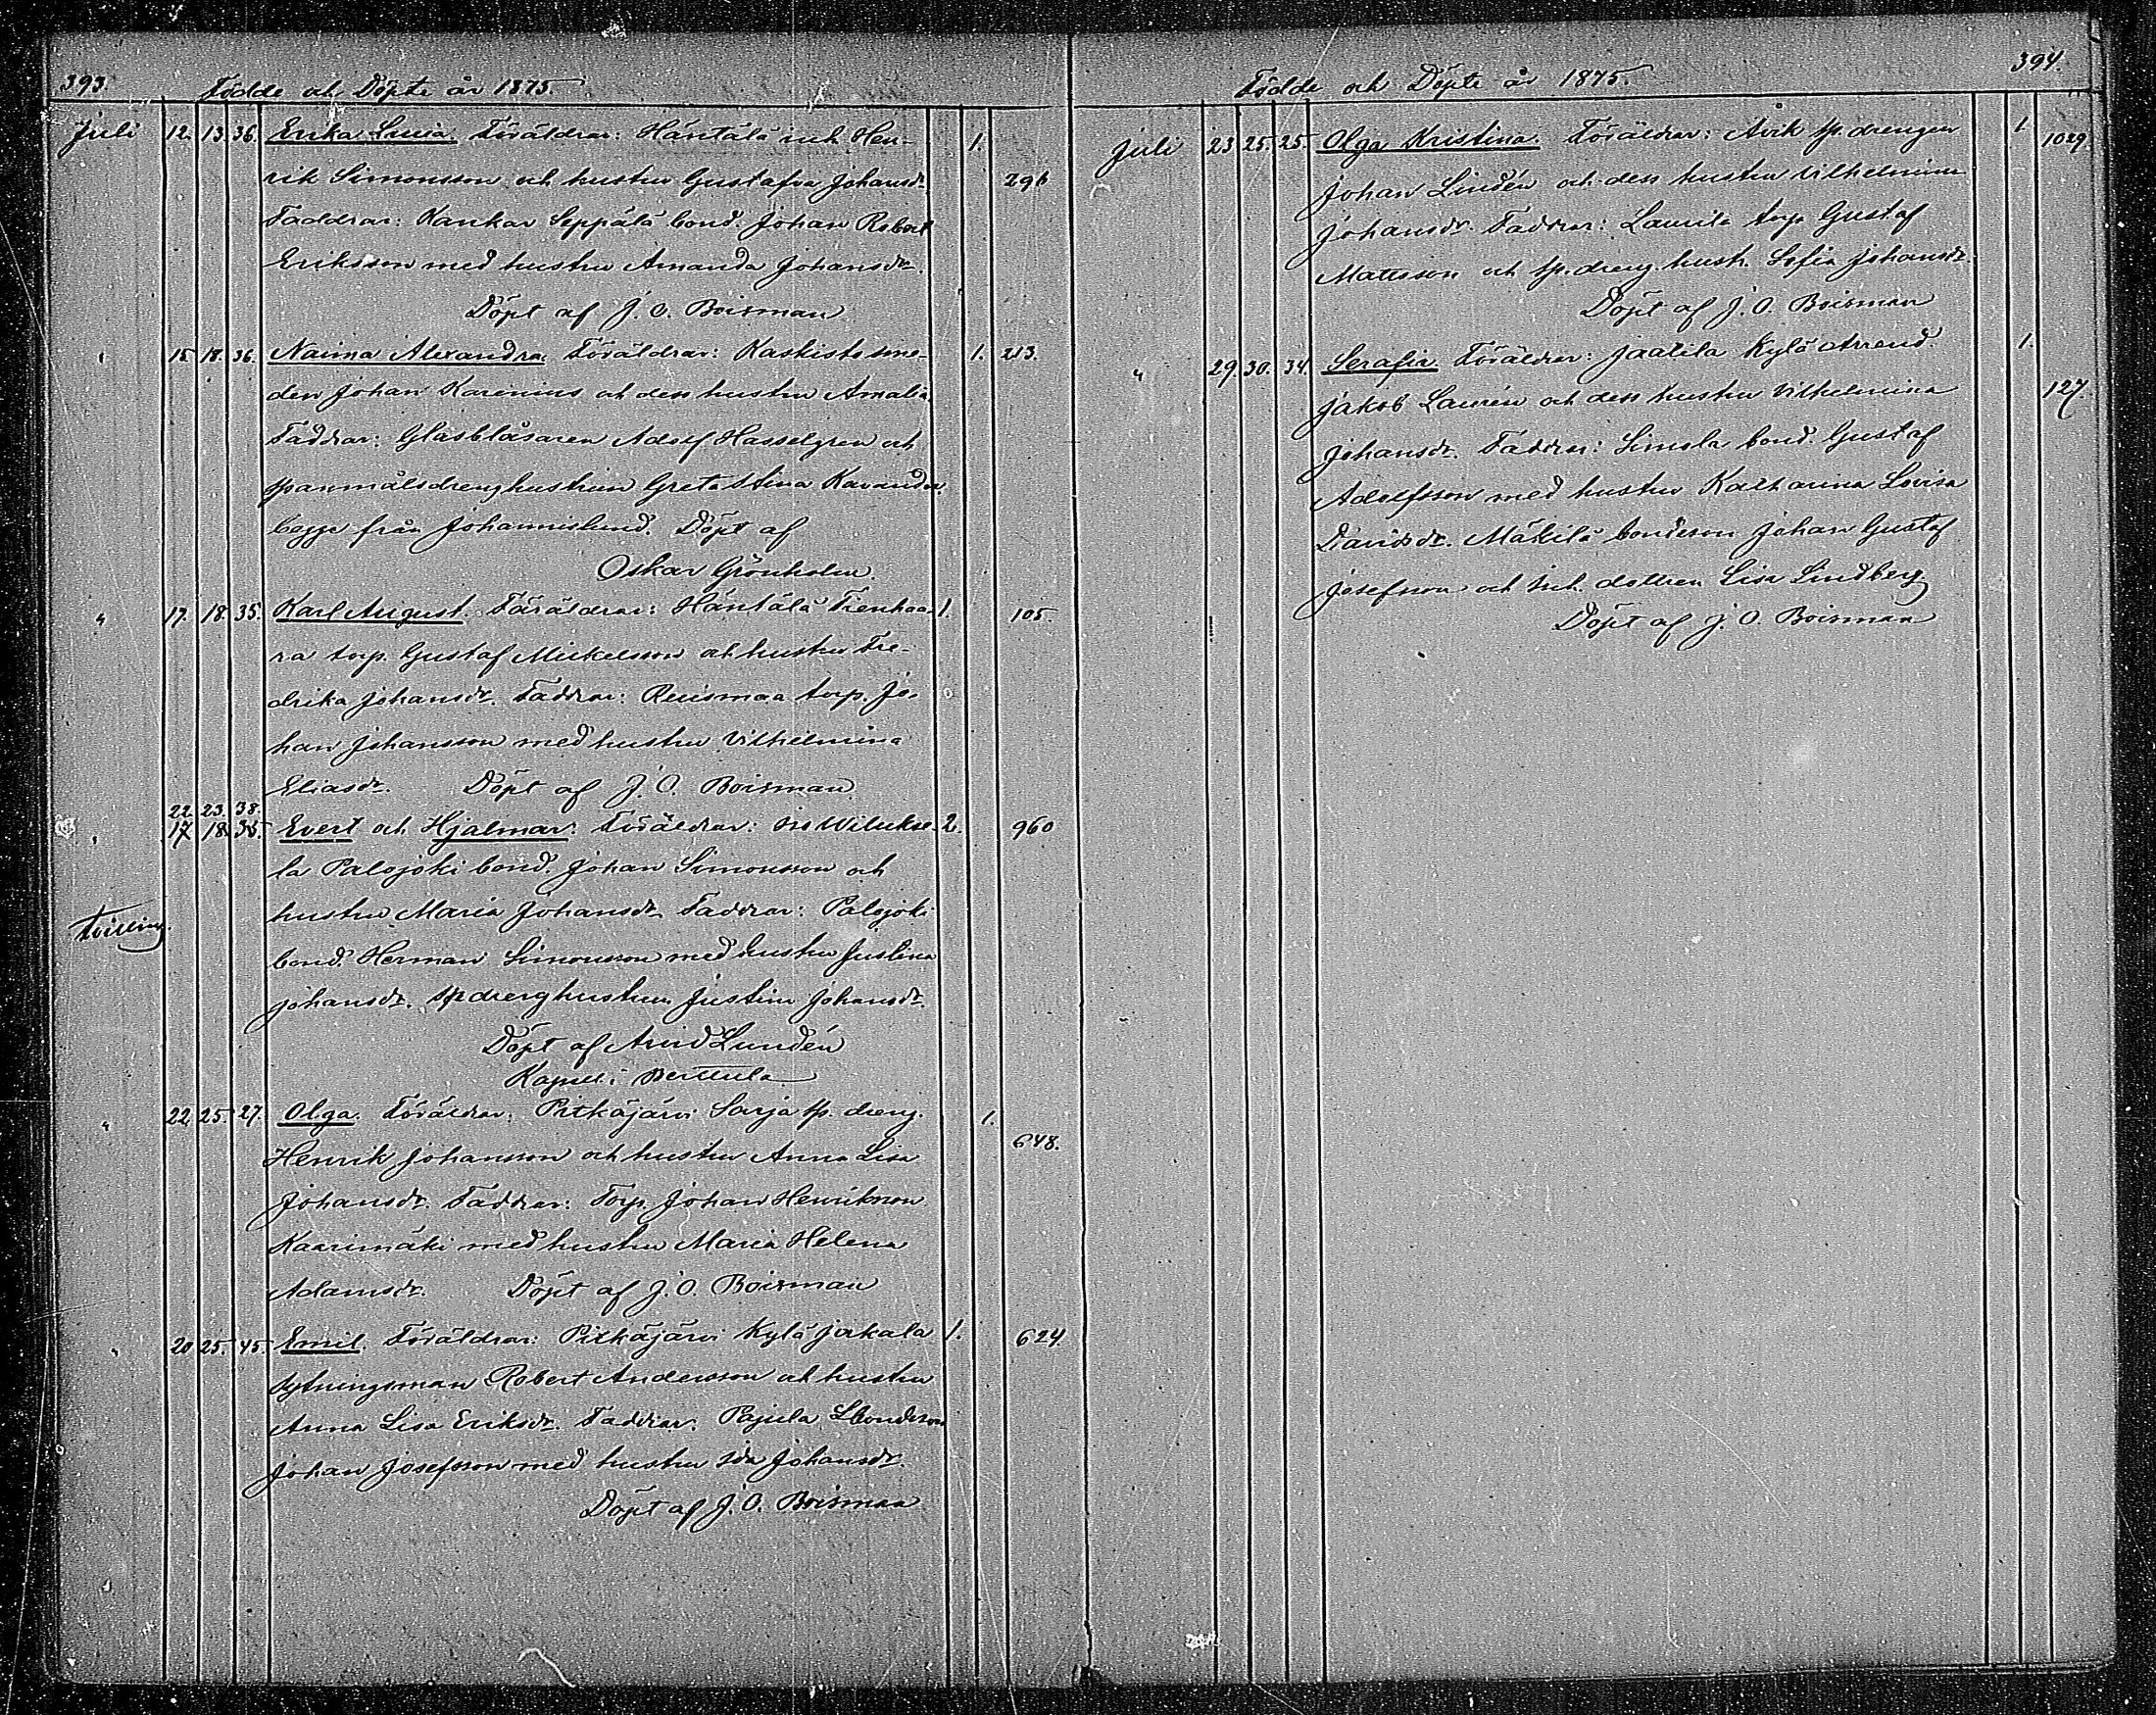 393. Födde och Döpte år 1875.
Juli 12. 13. 36. Erika Lucia. Föräldrar: Häntälä inh. Hen- 1.
rik Simonsson och hustru Gustafva Johansdr. 296
Faddrar: Kankar Seppälä bond. Johan Robert
Eriksson med hustru Amanda Johansdr.
Döpt af J. O. Boisman
" 15. 18. 36. Naima Alexandra. Föräldrar: Kaskisto sme- 1. 213.
den Johan Karenius och dess hustru Amalia.
Faddrar: Glasblåsaren Adolf Hasselgren och
spanmålsdrenghustrun Greta Stina Kavander
begge från Johannislund. Döpt af
Oskar Grönholm.
" 17. 18. 35. Karl August. Föräldrar: Häntälä Tienhaa- 1. 105.
ra torp. Gustaf Mickelsson och hustru Fre-
drika Johansdr. Faddrar: Ruismaa torp. Jo-
han Johansson med hustru Vilhelmina
Eliasdr. Döpt af J. O. Boisman
22. 23. 38.
" 17. 18. 35. Evert och Hjalmar. Föräldrar: Iso Wilukse- 2. 960
la Palojoki bond. Johan Simonsson och
hustru Maria Johansdr. Faddrar: Palojoki
Tvilling.
bond. Herman Simonsson med hustru Justina
Johansdr. sp.drenghustrun Justina Johansdr.
Döpt af Arvid Lundén
Kapell. i Berttula
" 22. 25. 27. Olga. Föräldrar: Pitkäjärvi Sarja sp. dreng. 1.
Henrik Johansson och hustru Anna Lisa 648.
Johansdr. Faddrar: Torp. Johan Henriksson
Kaarimäki med hustru Maria Helena
Adamsdr. Döpt af J. O. Boisman
" 20 25. 45. Emil. Föräldrar: Pitkäjärvi Kylä Jaakala 1. 624.
sytningsman Robert Andersson och hustru
Anna Lisa Eriksdr. Faddrar: Pajula bondeson
Johan Josefsson med hustru Ida Johansdr.
Döpt af J. O. Boisman
394.
Födde och Döpte år 1875.
Juli 23. 25. 25. Olga Kristina. Föräldrar: Avik sp. drengen 1. 1029
Johan Lindén och dess hustru Vilhelmina
Johansdr. Faddrar: Laurila torp. Gustaf
Mattsson och sp. dreng. hustr. Sofia Johansdr.
Döpt af J. O. Boisman
" 29. 30. 34. Serafia. Föräldrar: Jaatila Kylä Arrend. 1.
Jakob Laurén och dess hustru Vilhelmina 127.
Johansdr. Faddrar: Simola bond. Gustaf
Adolfsson med hustru Katharina Lovisa
Davidsdr. Mäkilä bondeson Johan Gustaf
Josefsson och inh. dottren Lisa Lindberg
Döpt af J. O. Boisman